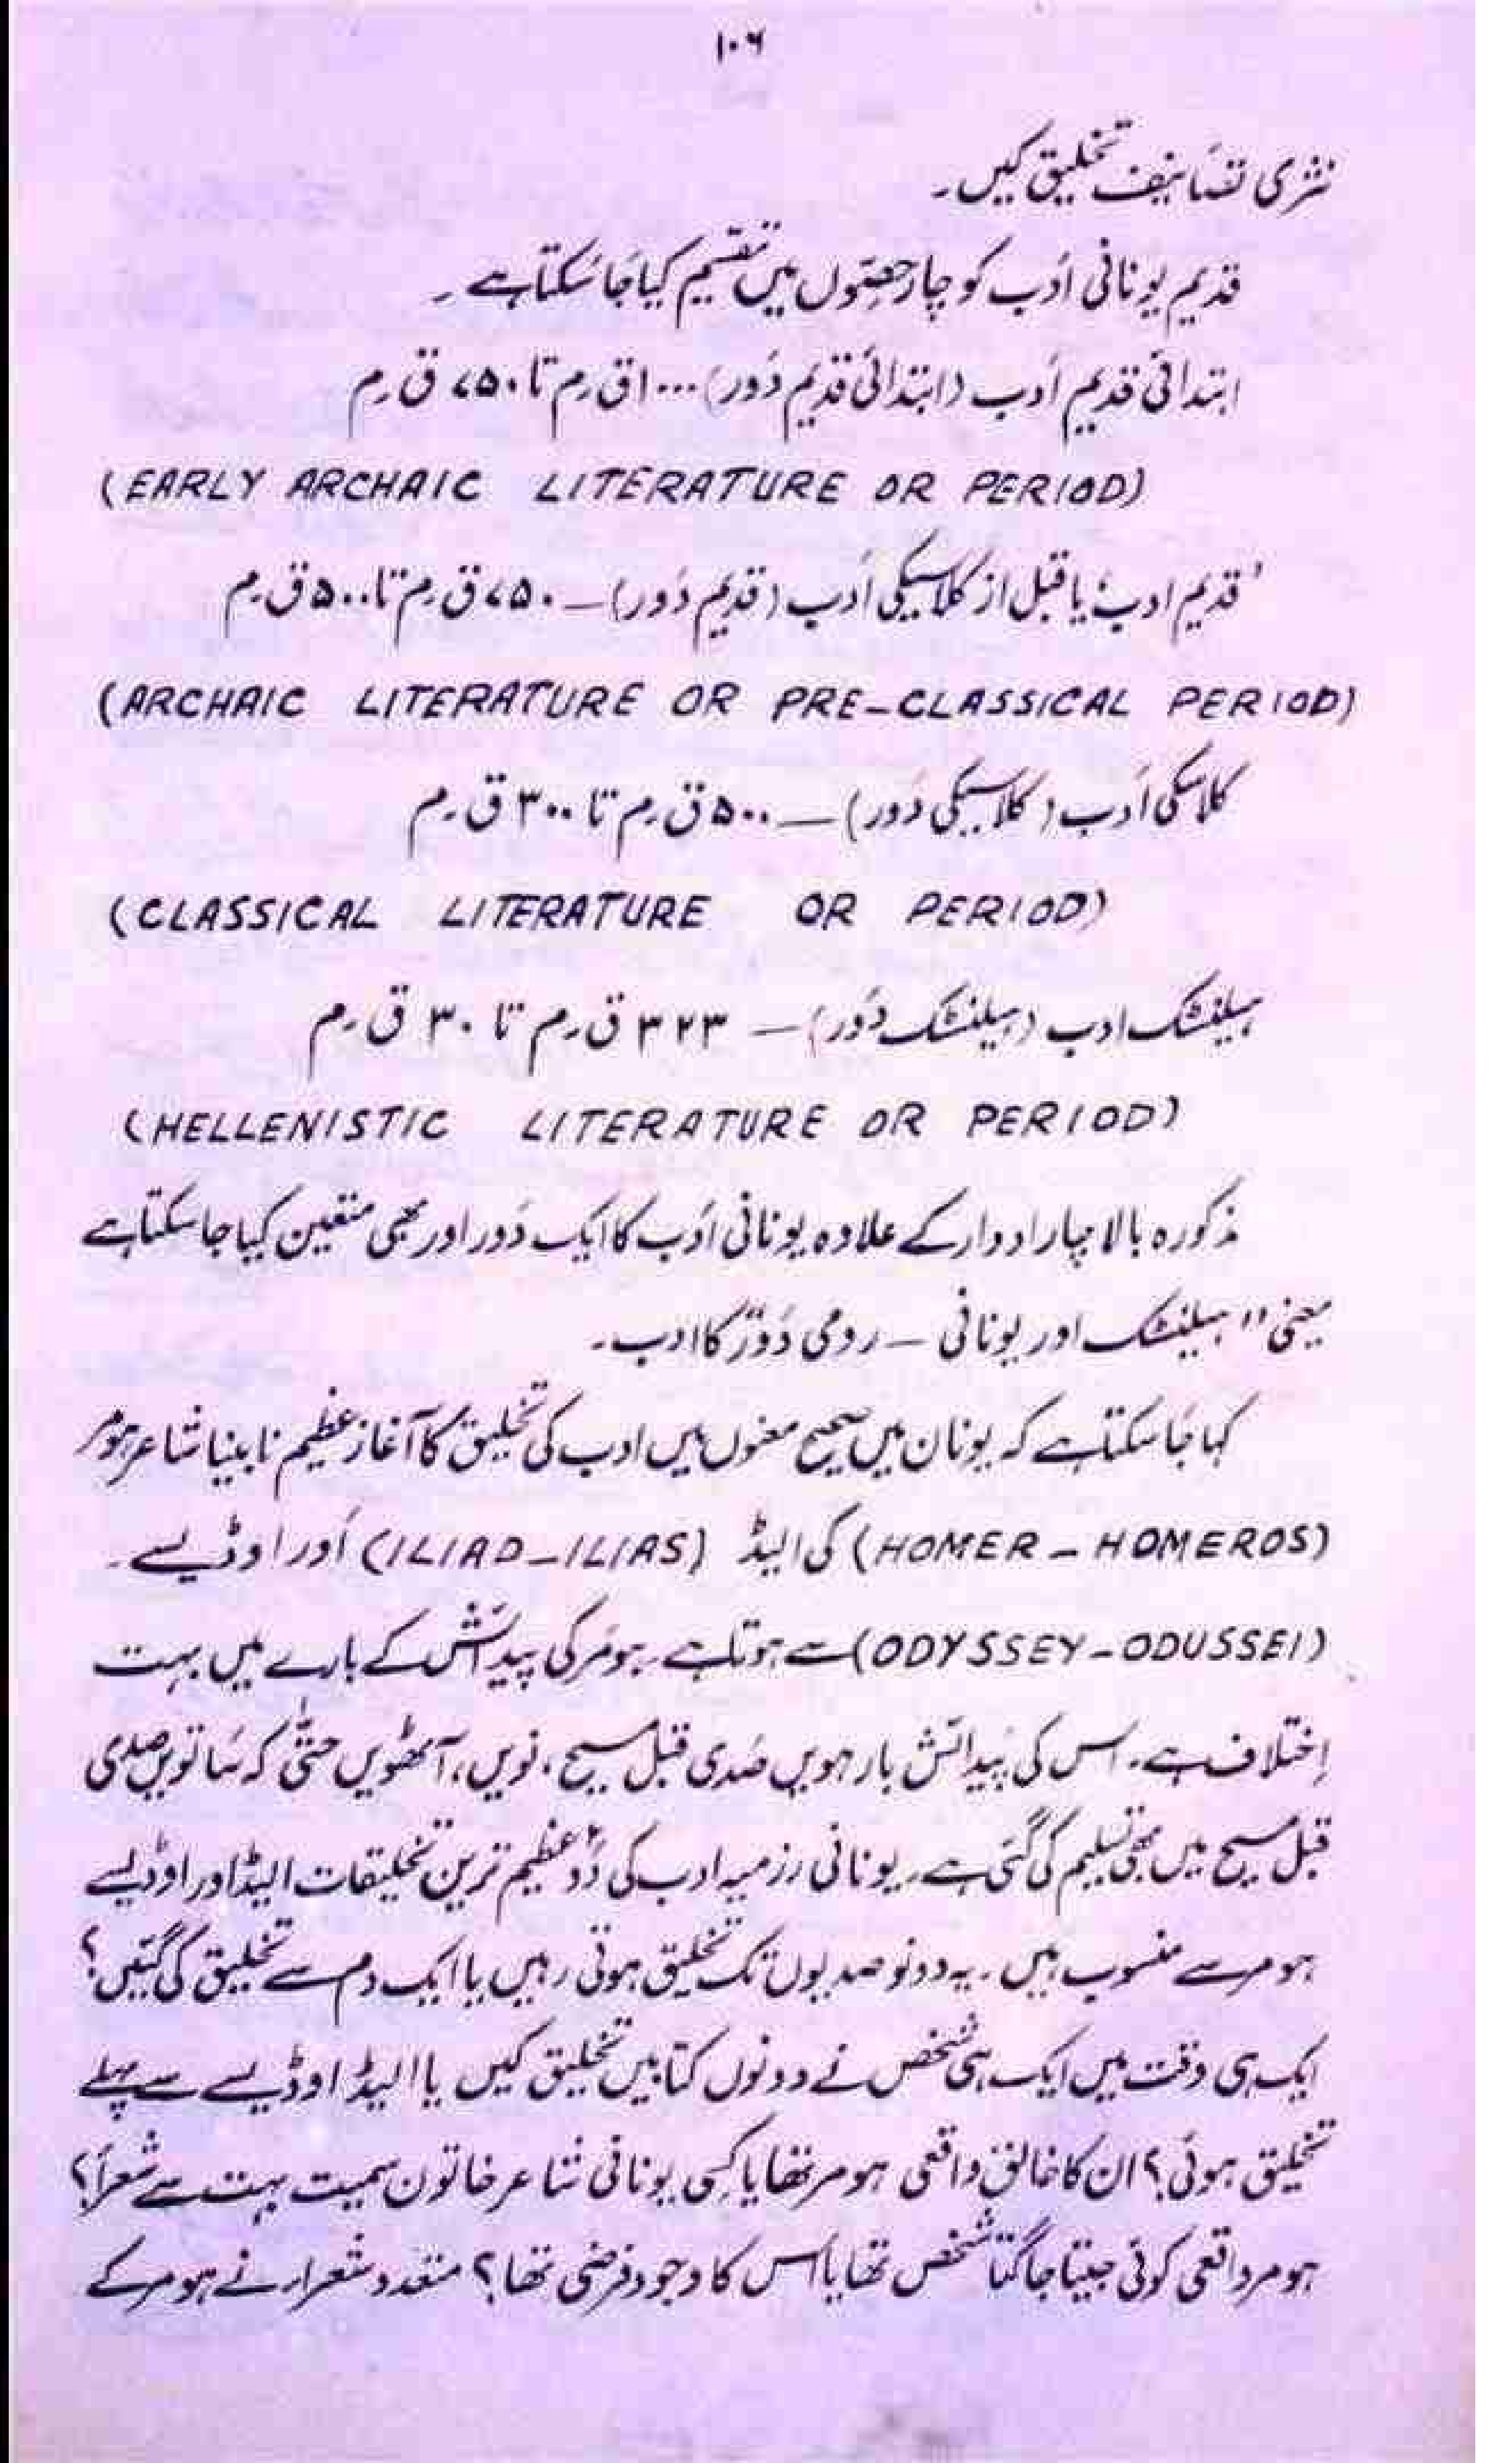 ۱۰۶
نثری تصانیف تخلیق کیں۔
قدیم یونانی اَدب کو چار حصّوں میں تقسیم کیا جا سکتا ہے۔
ابتدائی قدیم اَدب (ابتدائی قدیم دَور) ۱۰۰۰ ق۔م تا ۷۵۰ ق۔م
(EARLY ARCHAIC LITERATURE OR PERIOD)
'قدیم ادب' یا قبل از کلاسیکی اَدب (قدیم دَور) — ۷۵۰ ق۔م تا ۵۰۰ ق۔م
(ARCHAIC LITERATURE OR PRE-CLASSICAL PERIOD)
کلاسکی اَدب (کلاسیکی دَور) — ۵۰۰ ق۔م تا ۳۰۰ ق۔م
(CLASSICAL LITERATURE OR PERIOD)
ہیلنسٹک ادب (ہیلنسٹک دَور) — ۳۲۳ ق۔م تا ۳۰ ق۔م
(HELLENISTIC LITERATURE OR PERIOD)
مذکورہ بالا چار ادوار کے علاوہ یونانی اَدب کا ایک دَور اور بھی متعین کیا جا سکتا ہے
یعنی "ہیلنسٹک اور یونانی — رومی دَور" کا ادب۔
کہا جا سکتا ہے کہ یونان میں صحیح معنوں میں ادب کی تخلیق کا آغاز عظیم نابینا شاعر ہومر
(HOMER - HOMEROS) کی الیڈ (ILIAD-ILIAS) اَور اوڈیسے۔
(ODYSSEY-ODUSSEI) سے ہوتا ہے۔ ہومر کی پیدائش کے بارے میں بہت
اِختلاف ہے۔ اس کی پیدائش بارہویں صَدی قبل مسیح، نویں، آٹھویں حتّٰی کہ ساتویں صدی
قبل مسیح میں بھی تسلیم کی گئی ہے۔ یونانی رزمیہ ادب کی دو عظیم ترین تخلیقات الیڈ اور اوڈیسے
ہومر سے منسوب ہیں۔ یہ دونو صدیوں تک تخلیق ہوتی رہیں یا ایک دم سے تخلیق کی گئیں؟
ایک ہی وقت میں ایک ہی شخص نے دونوں کتابیں تخلیق کیں یا الیڈ اوڈیسے سے پہلے
تخلیق ہوئی؟ ان کا خالق واقعی ہومر تھا یا کسِی یونانی شاعر خاتون سمیت بہت سے شعرأ؟
ہومر واقعی کوئی جیتا جاگتا شخص تھا یا اُس کا وجود فرضی تھا؟ متعدد شعراء نے ہومر کے